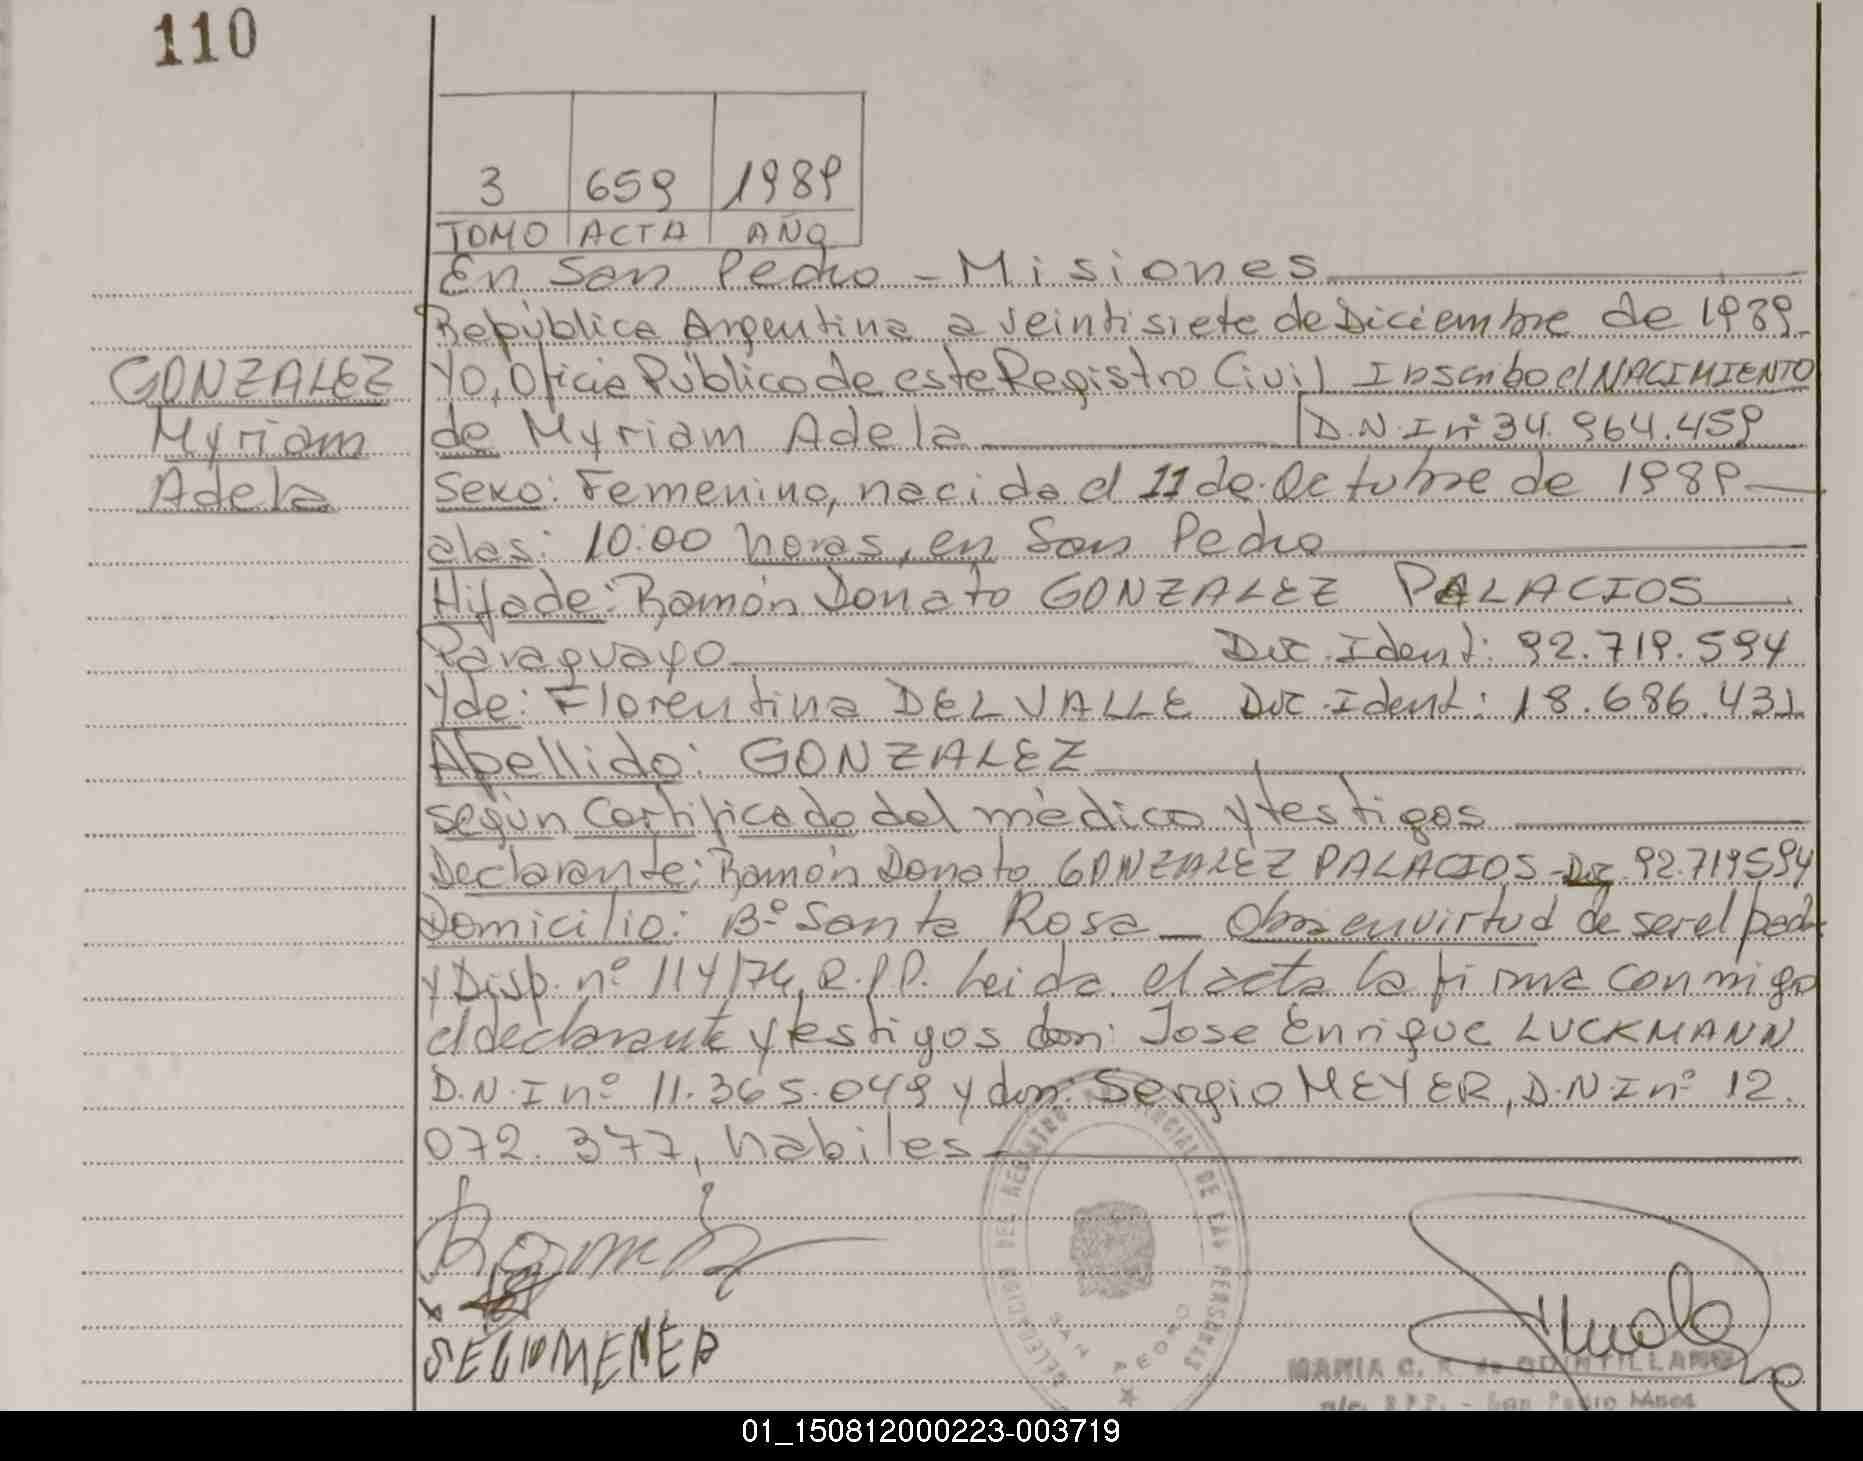 110
3 659 1989
TOMO ACTA AÑO
En San Pedro - Misiones
República Argentina a veintisiete de Diciembre de 1989
GONZALEZ
Myriam
Adela
Yo, Oficial Público de este Registro Civil Inscribo el NACIMIENTO
de Myriam Adela D.N.I nº 34.964.459
Sexo: Femenino, nacida el 11 de Octubre de 1989
a las: 10:00 horas, en San Pedro
Hija de: Ramón Donato GONZALEZ PALACIOS
Paraguayo Doc. Ident: 92.719.594
Y de: Florentina DEL VALLE Doc. Ident: 18.686.431
Apellido: GONZALEZ
según Certificado del médico y testigos
Declarante: Ramón Donato GONZALEZ PALACIOS - Doc. 92.719594
Domicilio: Bº Santa Rosa - Obra en virtud de ser el padre
y Disp. nº 114/74, R.P.P. Leida el acta la firma conmigo
el declarante y testigos don: Jose Enrique LUCKMANN
D.N.I nº 11.365.049 y don: Sergio MEYER, D.N.I nº 12.
072.377, habiles
DELEGACION DEL REGISTRO PROVINCIAL DE LAS PERSONAS
SAN PEDRO
MARIA C. R. de QUINTILLANO
San Pedro Mnes
01_150812000223-003719